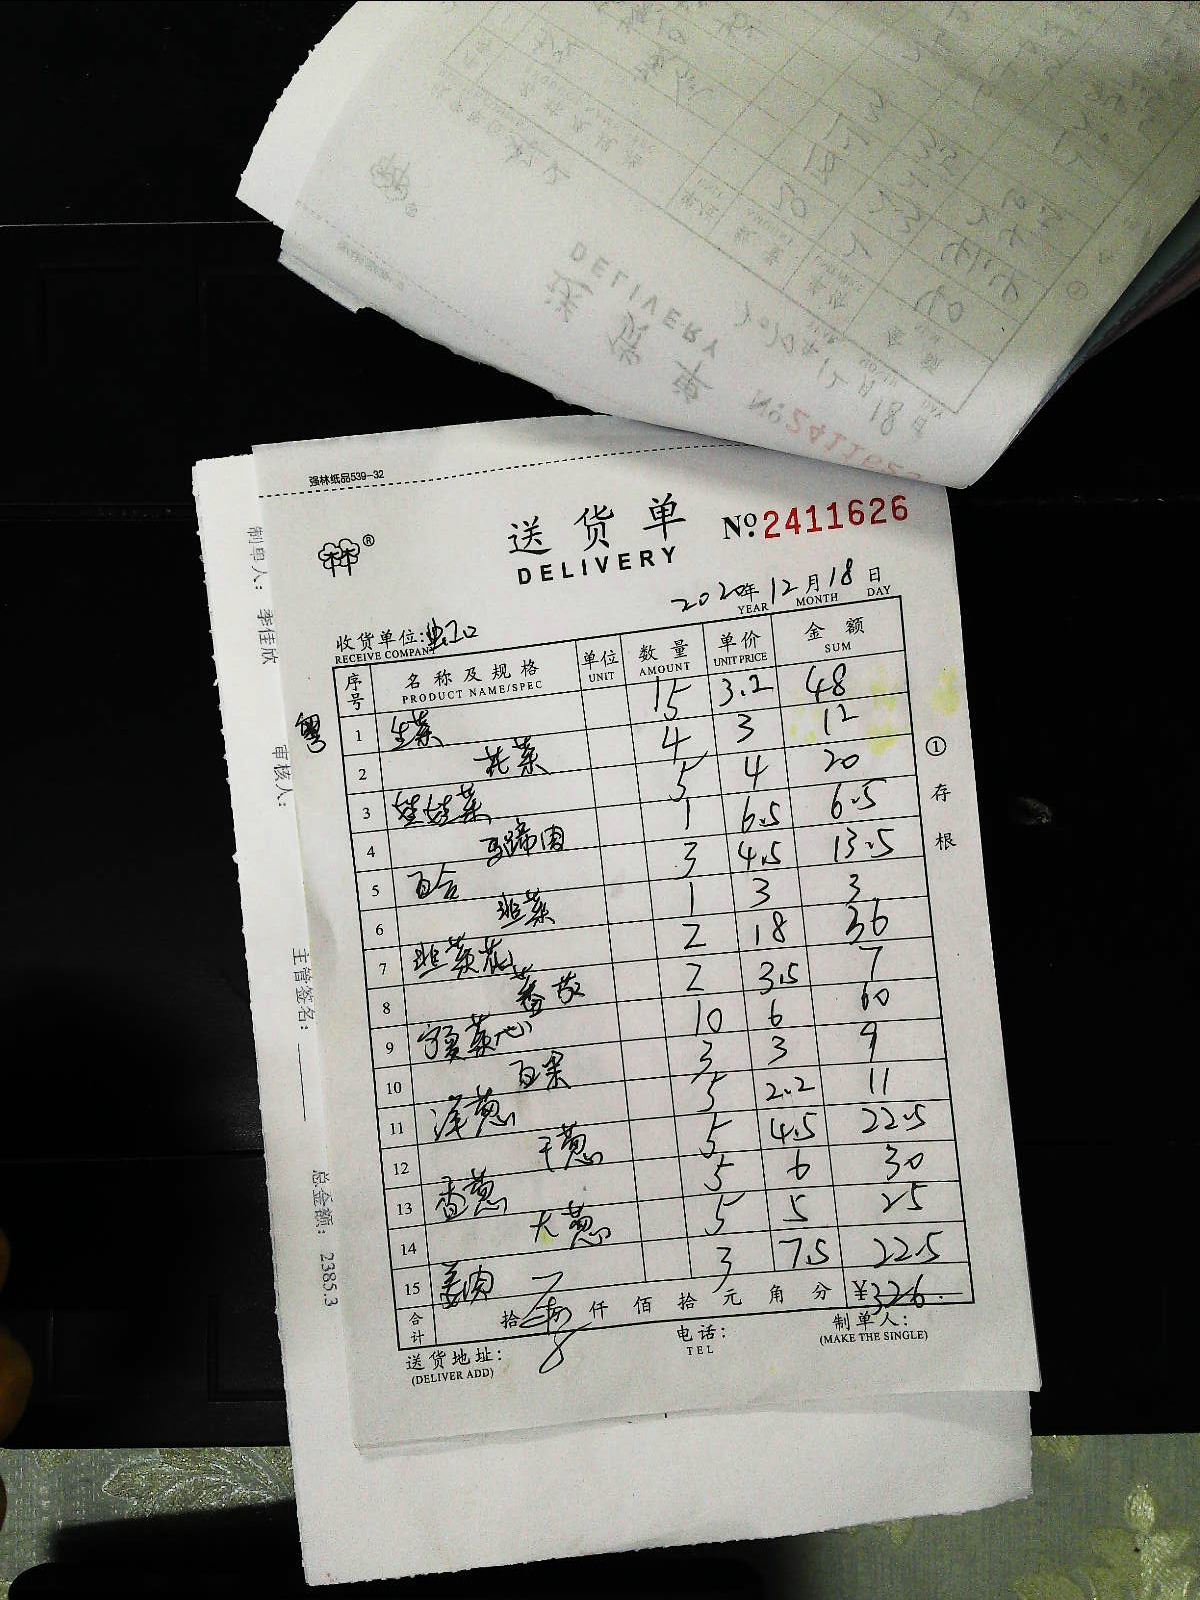 强林纸品539-32
送货单
DELIVERY
№ 2411626
2020年 12月 18日
YEAR MONTH DAY
收货单位:
RECEIVE COMPANY
序号 名称及规格 单位 数量 单价 金额
PRODUCT NAME/SPEC UNIT AMOUNT UNIT PRICE SUM
1 生菜 15 3.2 48
2 花菜 4 3 12
3 娃娃菜 5 4 20
4 马蹄肉 1 6.5 6.5
5 百合 3 4.5 13.5
6 韭菜 1 3 3
7 韭菜花 2 18 36
8 番茄 2 3.5 7
9 宁夏菜心 10 6 60
10 百果 3 3 9
11 洋葱 5 2.2 11
12 干葱 5 4.5 22.5
13 香葱 5 6 30
14 大葱 5 5 25
15 姜肉 3 7.5 22.5
合计 拾 仟 佰 拾 元 角 分 ¥326.
送货地址:
(DELIVER ADD)
电话:
TEL
制单人:
(MAKE THE SINGLE)
① 存根
制单人: 李佳欣
审核人:
主管签名:
总金额: 2385.3